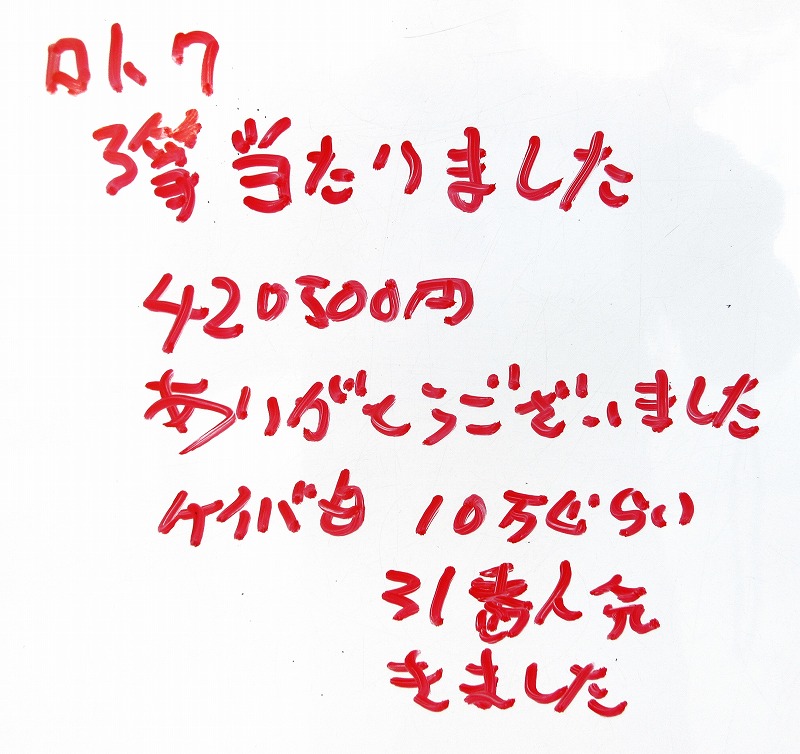 ロト7
3等当たりました
420300円
ありがとうございました
ケイバも 10万ぐらい
31番人気
きました